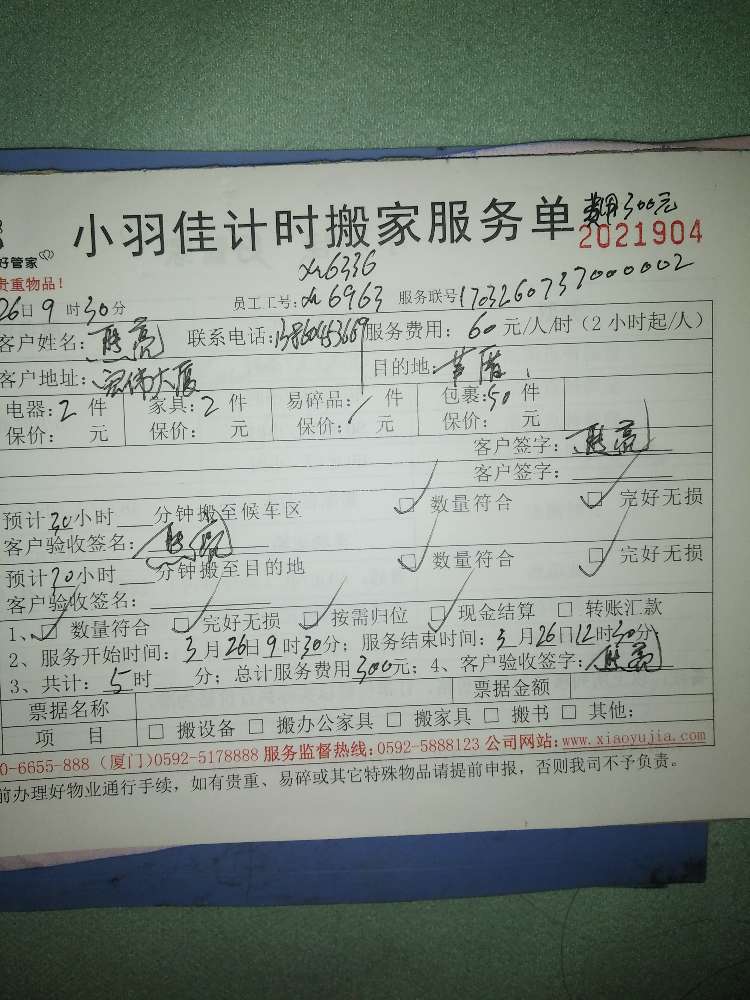 小羽佳计时搬家服务单 费用300元
好管家 2021904
贵重物品！ xr6336
26日9时30分 员工工号： 6963 服务联号1703260737000002
客户姓名： 联系电话： 服务费用：60元/人/时（2小时起/人）
客户地址：宏伟大厦 目的地：
电器：2件 家具：2件 易碎品：/件 包裹：50件
保价： 元 保价： 元 保价： 元 保价： 元
客户签字：
客户签字：
预计30小时 分钟搬至候车区 □ 数量符合 □ 完好无损
客户验收签名：
预计20小时 分钟搬至目的地 □ 数量符合 □ 完好无损
客户验收签名：
1、□ 数量符合 □ 完好无损 □ 按需归位 □ 现金结算 □ 转账汇款
2、服务开始时间：3月26日9时30分；服务结束时间：3月26日12时30分
3、共计：5时 分；总计服务费用300元；4、客户验收签字：
票据名称 票据金额
项 目 □ 搬设备 □ 搬办公家具 □ 搬家具 □ 搬书 □ 其他：
0-6655-888 (厦门)0592-5178888 服务监督热线：0592-5888123 公司网站：www.xiaoyujia.com
前办理好物业通行手续，如有贵重、易碎或其它特殊物品请提前申报，否则我司不予负责。